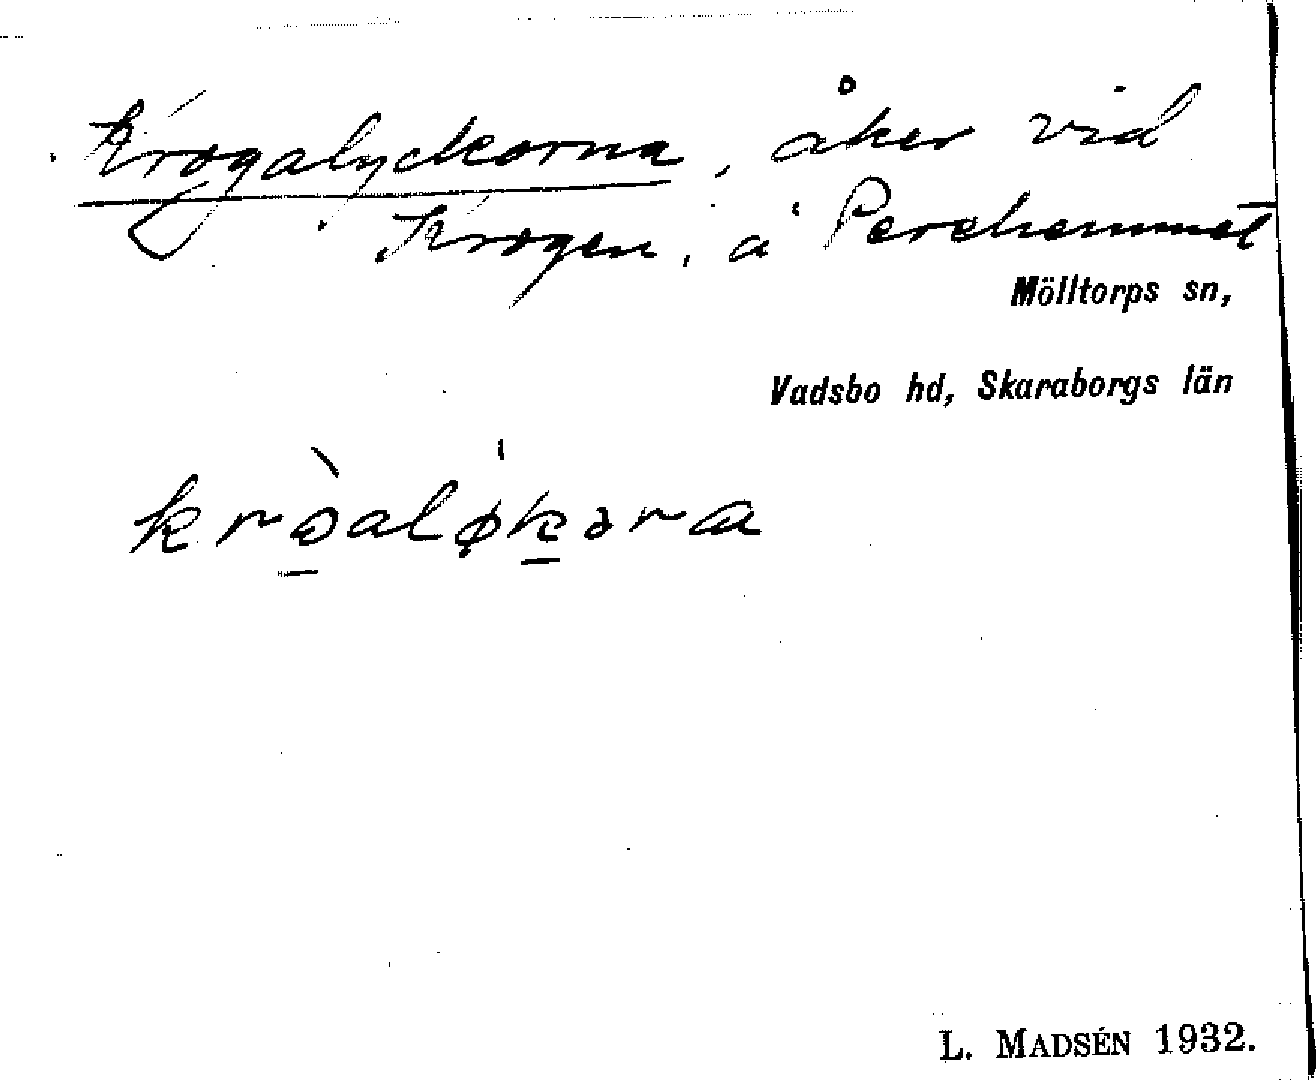 Krogalyckorna, åker vid
Krogen, å Perehemmet
Mölltorps sn,
Vadsbo hd, Skaraborgs län
L. MADSÉN 1932.